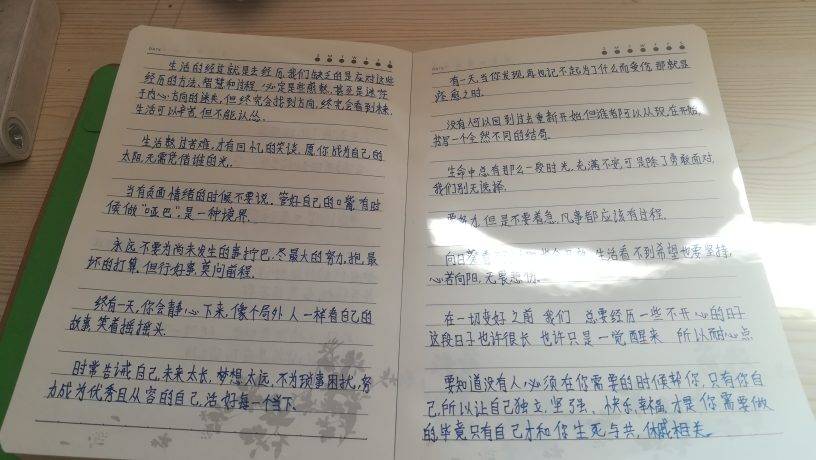 DATE
S M T W T F S
生活的经过就是去经历,我们缺乏的是应对这些
经历的方法,智慧和过程,必定是些煎熬,甚至是迷茫
于内心方向的迷失,但终究会找到方向,终究会看到未来,
生活可以辛苦,但不能认怂.
生活熬过苦难,才有回忆的笑谈,愿你成为自己的
太阳,无需凭借谁的光.
当有负面情绪的时候不要说.管好自己的口嘴,有时
候做“哑巴”,是一种境界.
永远不要为尚未发生的事拧巴,尽最大的努力,抱最
坏的打算,但行好事,莫问前程.
终有一天,你会静心下来,像个局外人一样看自己的
故事,笑着摇摇头.
时常告诫自己,未来太长,梦想太远,不为琐事困扰,努
力成为优秀且从容的自己,活好每一个当下.
DATE
S M T W T F S
有一天,当你发现,再也记不起为了什么而受伤,那就是
痊愈之时.
没有人可以回到过去重新开始,但谁都可以从现在开始,
书写一个全然不同的结局.
生命中总有那么一段时光,充满不安,可是除了勇敢面对,
我们别无选择.
要努力,但是不要着急,凡事都应该有过程.
向日葵 生活看不到希望也要坚持,
心若向阳,无畏悲伤.
在一切变好之前 我们 总要经历一些不开心的日子
这段日子也许很长 也许只是一觉醒来 所以耐心点
要知道没有人必须在你需要的时候帮你,只有你自
己,所以让自己独立、坚强、快乐,幸福,才是你需要做
的,毕竟只有自己才和你生死与共,休戚相关.